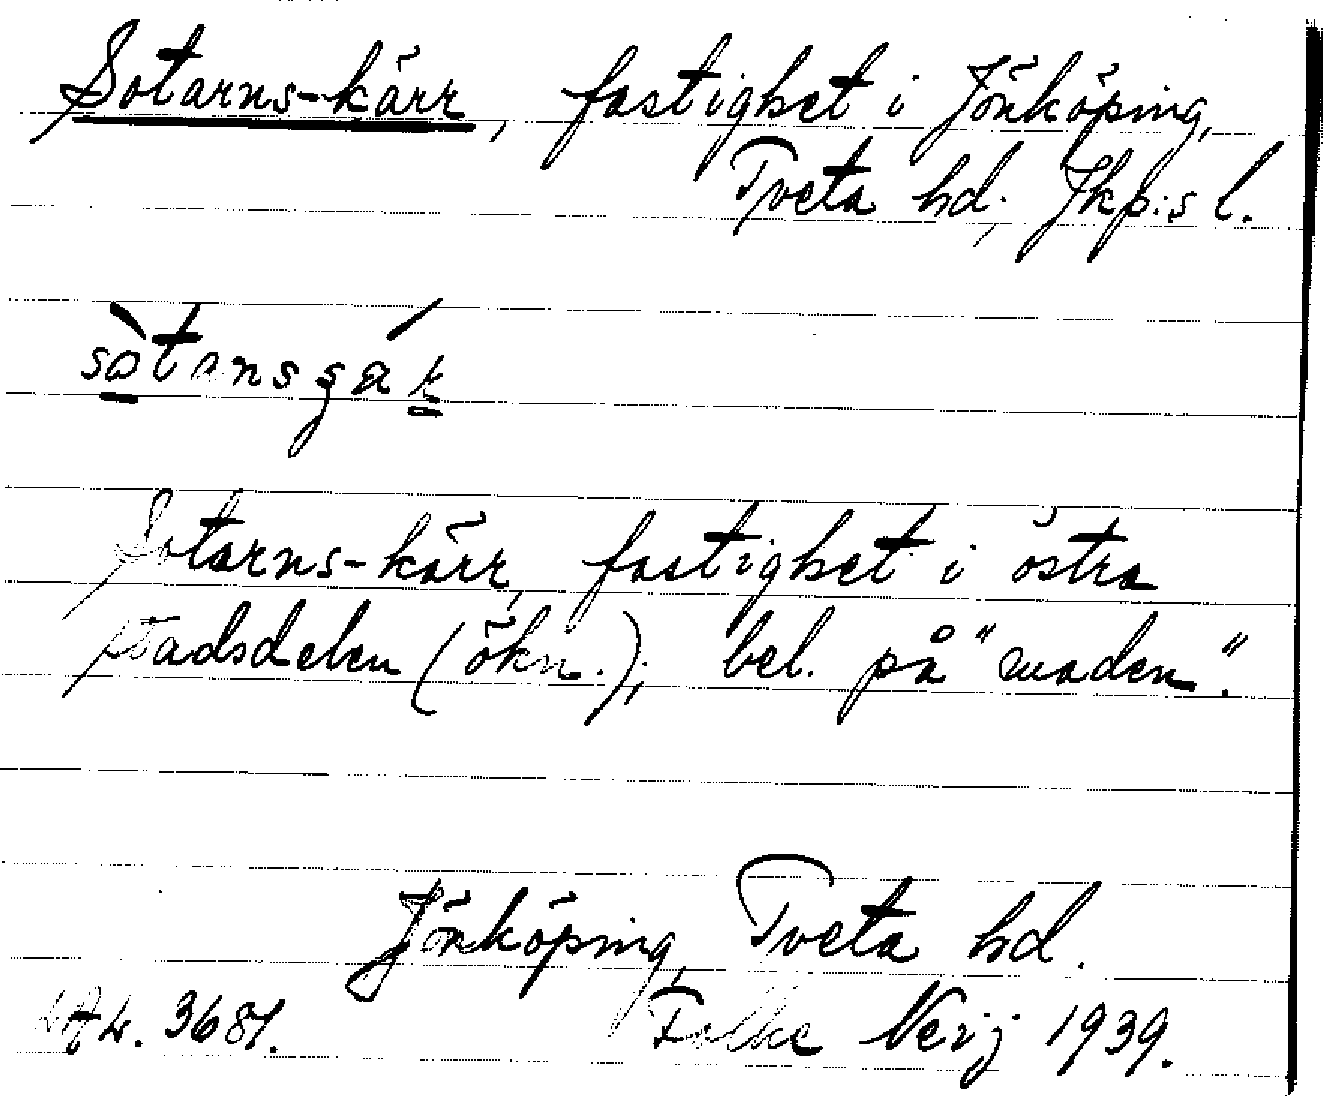 Sotarns-kärr, fastighet i Jönköping,
Tveta hd, Jkp:s l.
sòtansʂák
Sotarns-kärr, fastighet i östra
stadsdelen (ökn.); bel. på "maden".
Jönköping, Tveta hd.
3681. Folke Neij 1939.